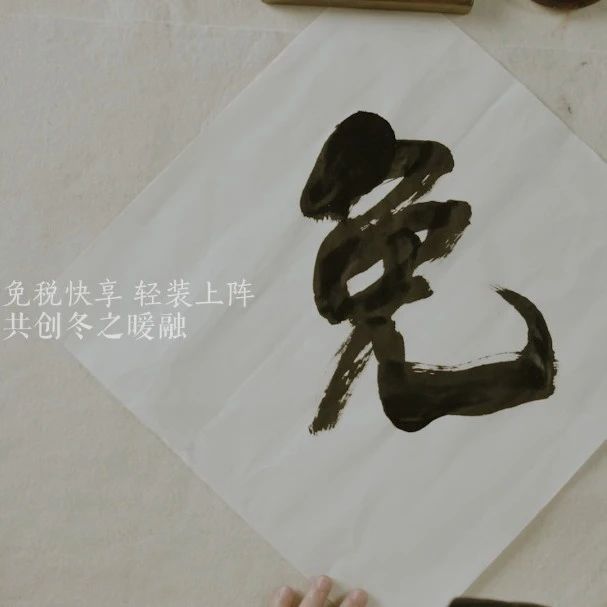 免税快享 轻装上阵
共创冬之暖融
免